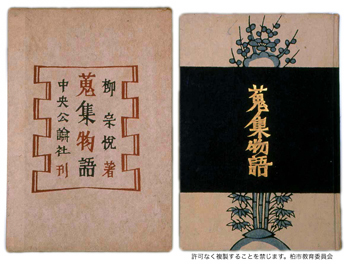 柳宗悦著
蒐集物語
中央公論社刊
蒐集物語
許可なく複製することを禁じます。柏市教育委員会